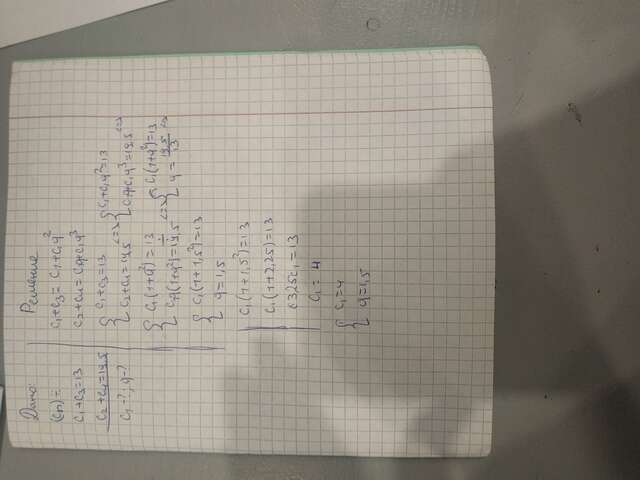 Дано:
(cn) =
c₁+c₃=13
c₂+c₄=19,5
c₁-?, q-?
Решение
c₁+c₃ = c₁+c₁q²
c₂+c₄ = c₁q+c₁q³
{ c₁+c₃=13
{ c₂+c₄=19,5 <=>
{ c₁+c₁q²=13
{ c₁q+c₁q³=19,5 <=>
{ c₁(1+q²) = 13
{ c₁q(1+q²)=19,5 <=>
{ c₁(1+q²)=13
{ q = 19,5/13 <=>
{ c₁(1+1,5²)=13
{ q=1,5
c₁(1+1,5²)=13
c₁(1+2,25)=13
3,25c₁=13
c₁= 4
{ c₁=4
{ q=1,5